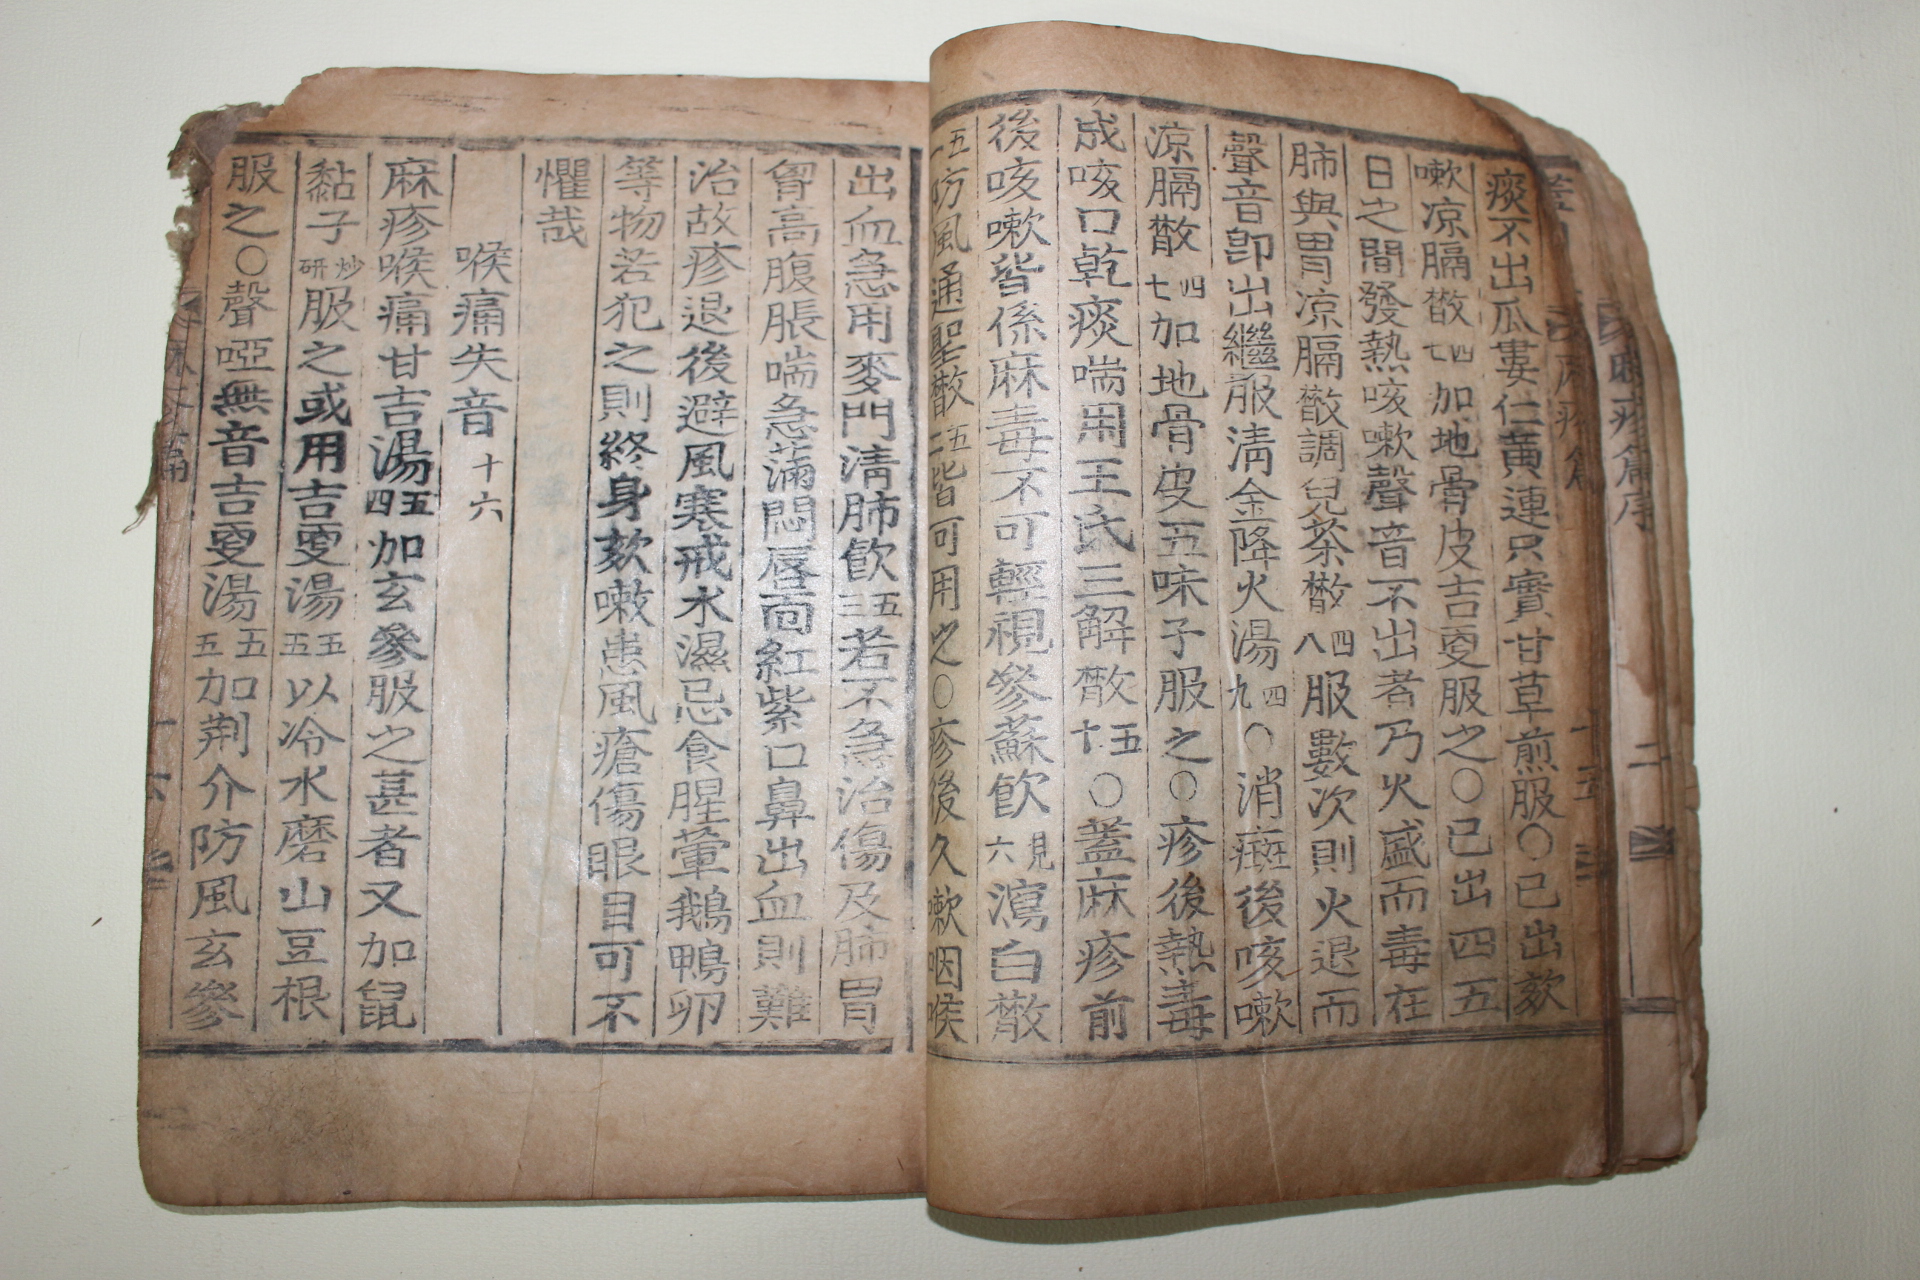 痰不出瓜蔞仁黃連只實甘草煎服○已出欬
嗽凉膈散四七加地骨皮吉更服之○已出四五
日之間發熱咳嗽聲音不出者乃火盛而毒在
肺與胃凉膈散調兒茶散四八服數次則火退而
聲音卽出繼服淸金降火湯四九○消癍後咳嗽
凉膈散四七加地骨皮五味子服之○疹後熱毒
成咳口乾痰喘用王氏三解散五十○蓋麻疹前
後咳嗽皆係麻毒不可輕視參蘇飮見六瀉白散
五一防風通聖散五二皆可用之○疹後久嗽咽喉
出血急用麥門淸肺飮五三若不急治傷及肺胃
胷高腹脹喘急滿悶唇面紅紫口鼻出血則難
治故疹退後避風寒戒水濕忌食腥葷鵝鴨卵
等物若犯之則終身欬嗽患風瘡傷眼目可不
懼哉
喉痛失音十六
麻疹喉痛甘吉湯五四加玄參服之甚者又加鼠
黏子炒研服之或用吉更湯五五以冷水磨山豆根
服之○聲啞無音吉更湯五五加荆介防風玄參
麻疹篇
十五
麻疹篇序
二
十六